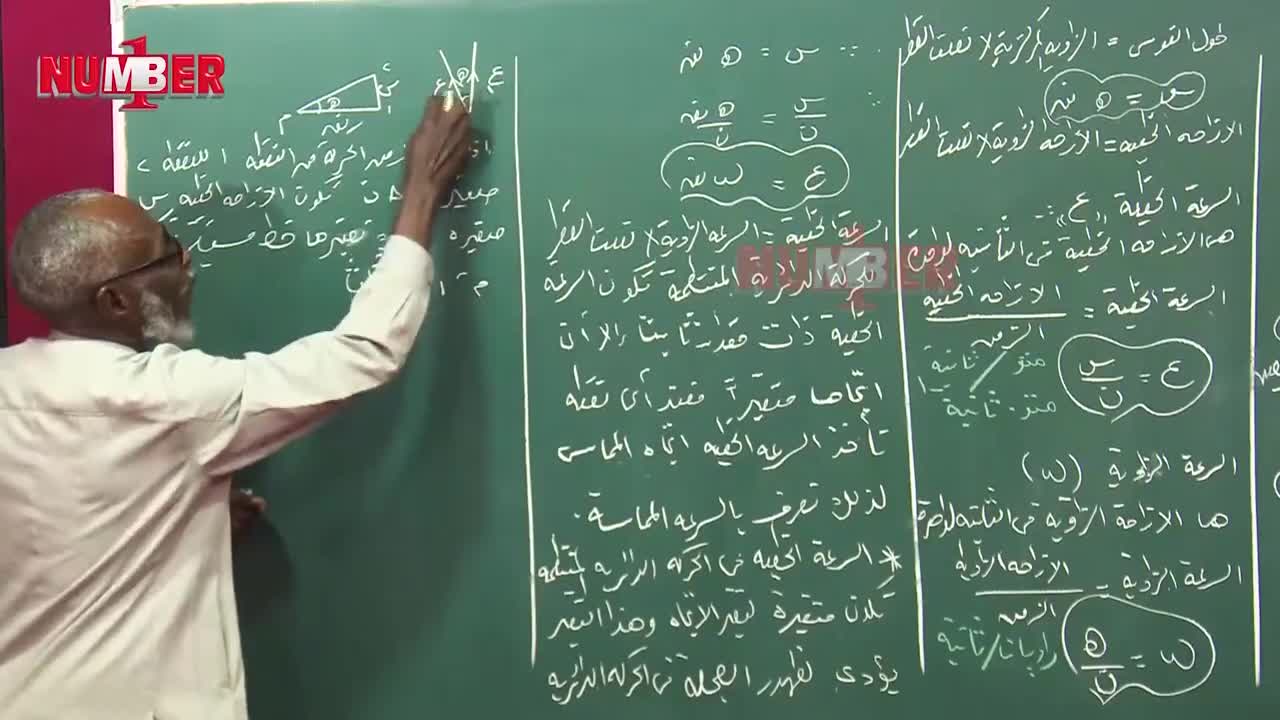 طول القوس = الزاوية المركزية × نصف القطر
س = هـ نق
الازاحة الخطية = الازاحة الزاوية × نصف القطر
السرعة الخطية "ع" :-
هى الازاحة الخطية فى الثانية الواحدة
السرعة الخطية = الازاحة الخطية
الزمن
ع = س / ن
متر / ثانية
متر . ثانية⁻¹
السرعة الزاوية (ω)
هى الازاحة الزاوية فى الثانية الواحدة
السرعة الزاوية = الازاحة الزاوية
الزمن
ω = هـ / ن
راديان / ثانية
∵ س = هـ نق
∴ س / ن = هـ نق / ن
ع = ω نق
السرعة الخطية = السرعة الزاوية × نصف القطر
للحركة الدائرية المنتظمة تكون السرعة
الخطية ذات مقدار ثابت إلا أن
اتجاهها متغيراً فعند أى نقطة
تأخذ السرعة الخطية اتجاه المماس
لذلك تعرف بالسرعة المماسية .
* السرعة الخطية فى الحركة الدائرية المنتظمة
تكون متغيرة لتغير الاتجاه وهذا التغير
يؤدى لظهور العجلة فى الحركة الدائرية
ع هـ ع
ء س ا
م هـ نق
زمن الحركة من النقطة ا للنقطة ء
صغير ن تكون الازاحة الخطية س
صغيرة نعتبرها خط مستقيم
م ا
NUMBER 1
NUMBER 1